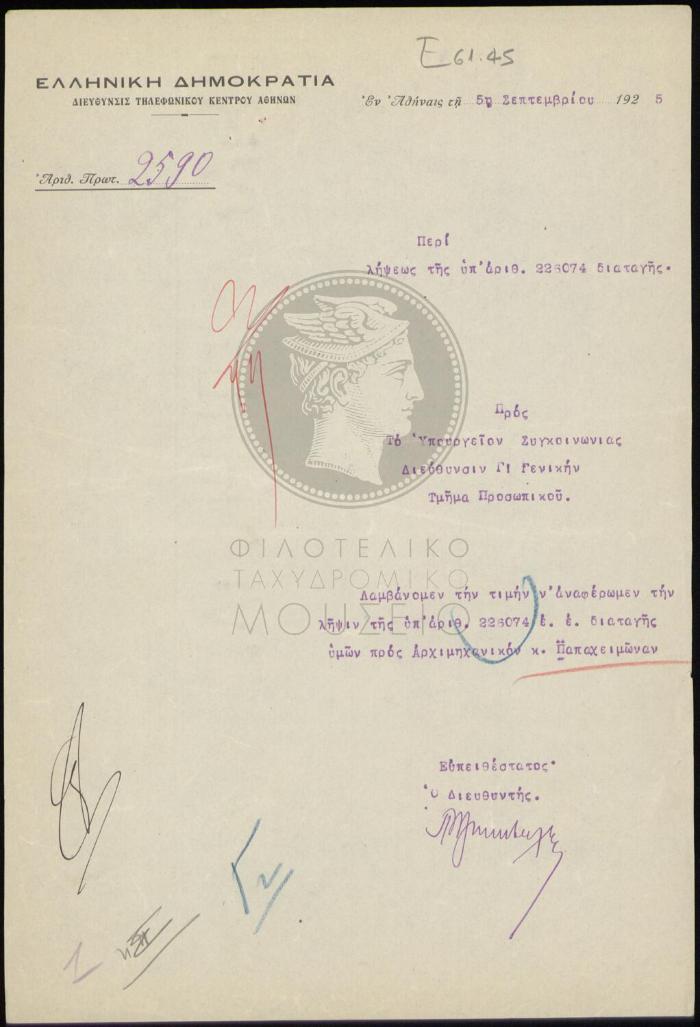 Ε 61.45
ΕΛΛΗΝΙΚΗ ΔΗΜΟΚΡΑΤΙΑ
ΔΙΕΥΘΥΝΣΙΣ ΤΗΛΕΦΩΝΙΚΟΥ ΚΕΝΤΡΟΥ ΑΘΗΝΩΝ
Ἐν Ἀθήναις τῇ 5ῃ Σεπτεμβρίου 1925
Ἀριθ. Πρωτ. 2590
Περί
λήψεως τῆς ὑπ'ἀριθ. 226074 διαταγῆς.
Πρός
Τό Ὑπουργεῖον Συγκοινωνίας
Διεύθυνσιν Γ! Γενικήν
Τμῆμα Προσωπικοῦ.
ΦΙΛΟΤΕΛΙΚΟ
ΤΑΧΥΔΡΟΜΙΚΟ
ΜΟΥΣΕΙΟ
Λαμβάνομεν τήν τιμήν ν'ἀναφέρωμεν τήν
λῆψιν τῆς ὑπ'ἀριθ. 226074 ἐ. ἐ. διαταγῆς
ὑμῶν πρός Ἀρχιμηχανικόν κ. Παπαχειμῶναν
Εὐπειθέστατος
Ὁ Διευθυντής.